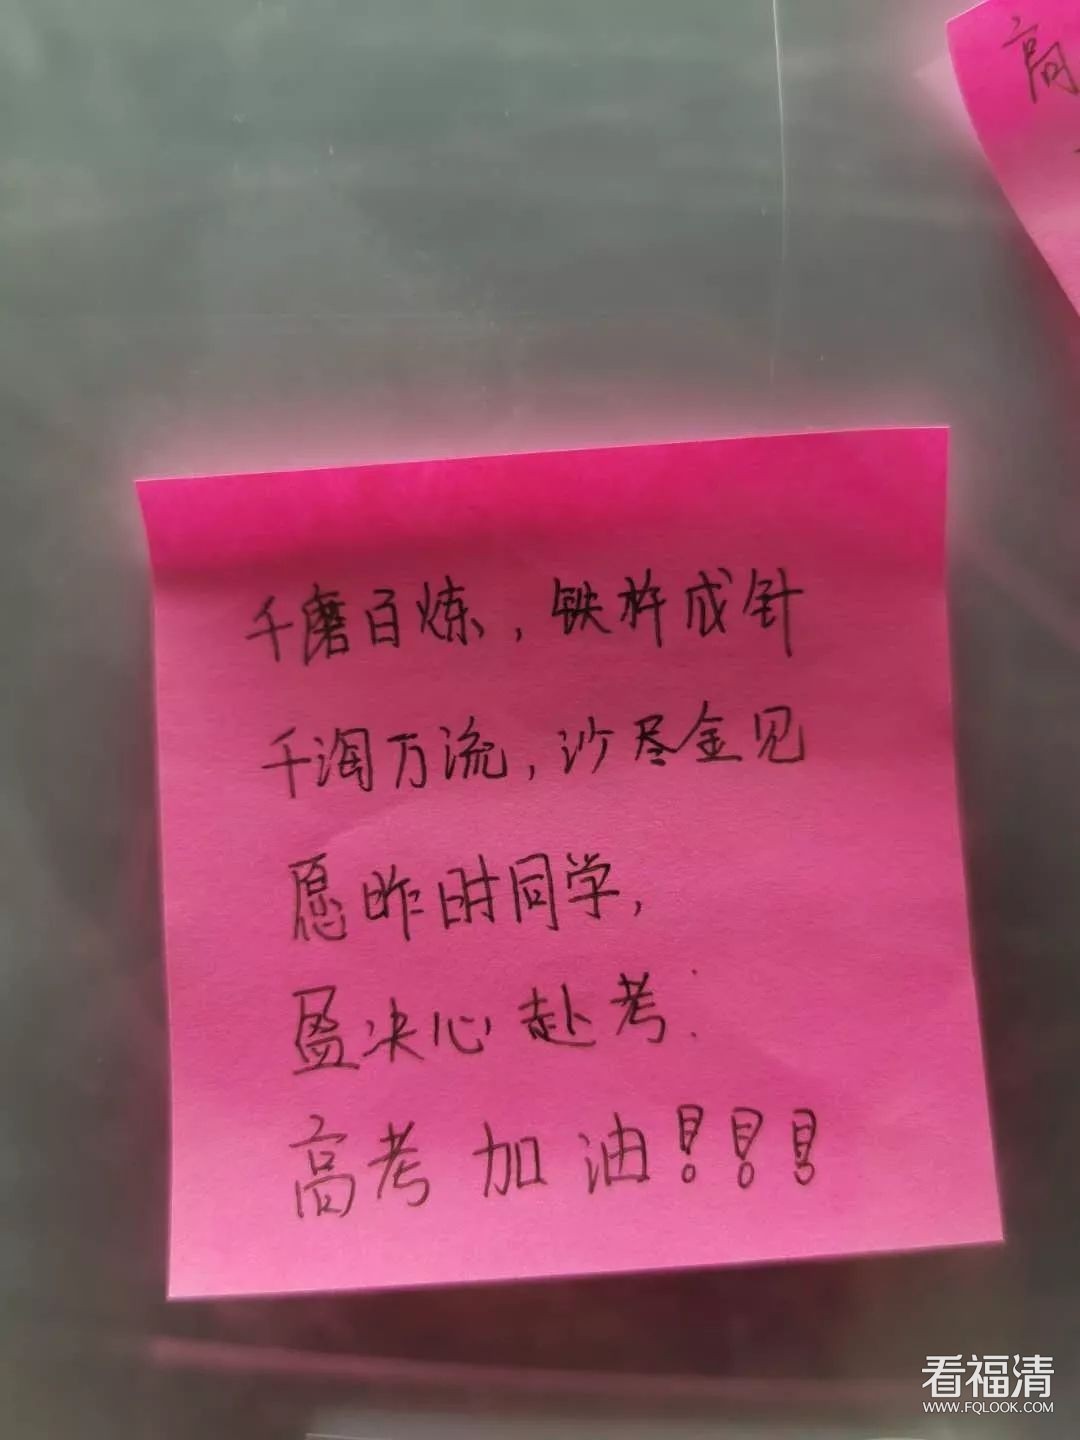 高
千磨百炼，铁杵成针
千淘万流，沙尽金见
愿昨时同学，
盈决心赴考.
高考加油！！！
看福清
WWW.FQLOOK.COM